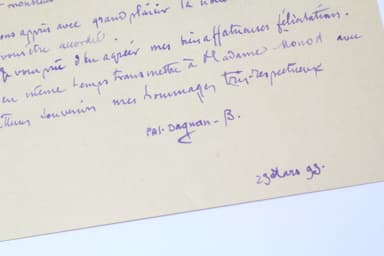 monsieur
ons appris avec grand plaisir la nou
vous être accordée.
Je vous prie d'en agréer mes bien affectueuses félicitations.
en même temps transmettre à Madame Monod avec
souvenir mes hommages très-respectueux
PAJ. Dagnan-B.
29 Mars 93.